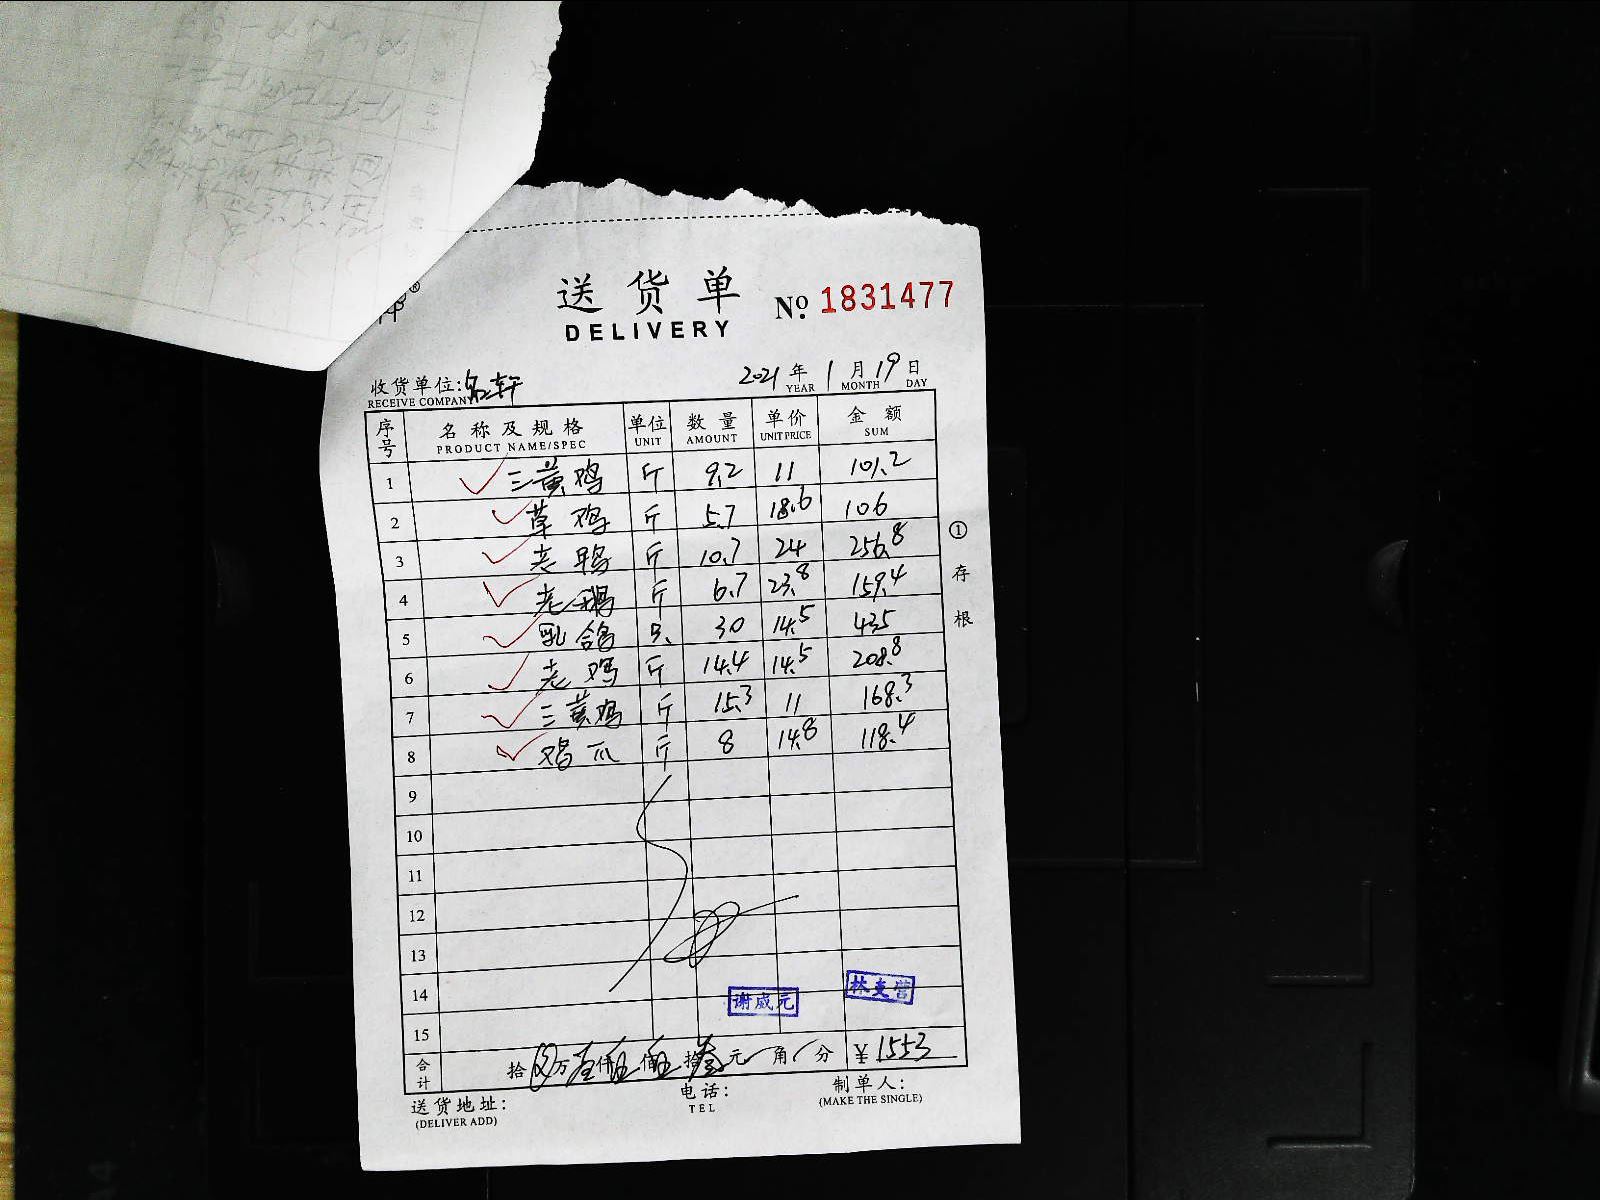 送货单 № 1831477
DELIVERY
收货单位: 2021 年 1 月 19 日
RECEIVE COMPANY YEAR MONTH DAY
序号 名称及规格 单位 数量 单价 金额
PRODUCT NAME/SPEC UNIT AMOUNT UNIT PRICE SUM
1 三黄鸡 斤 9.2 11 101.2
2 草鸡 斤 5.7 18.6 106
3 老鸭 斤 10.7 24 256.8
4 老鹅 斤 6.7 23.8 159.4
5 乳鸽 只 30 14.5 435
6 老鸡 斤 14.4 14.5 208.8
7 三黄鸡 斤 15.3 11 168.3
8 鸡爪 斤 8 14.8 118.4
9
10
11
12
13
14
15
谢威元
合计 拾 万 壹仟 伍佰 伍拾 叁元 角 分 ¥1553
送货地址: 电话: 制单人:
(DELIVER ADD) TEL (MAKE THE SINGLE)
①存根